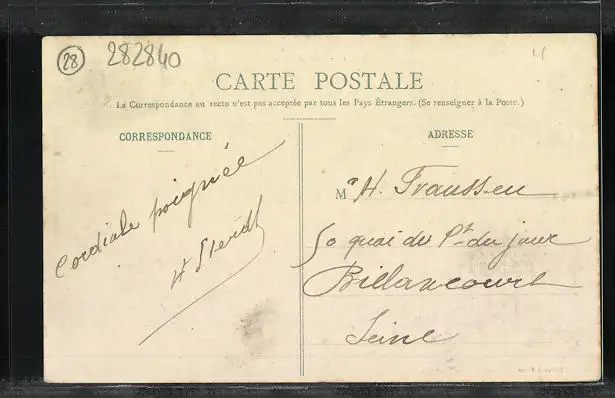 28
282840
CARTE POSTALE
La Correspondance au recto n'est pas acceptée par tous les Pays Étrangers. (Se renseigner à la Poste.)
CORRESPONDANCE
Cordiale poignée
ADRESSE
Mr H. Franssen
50 quai du Pt du jour
Billancourt
Seine